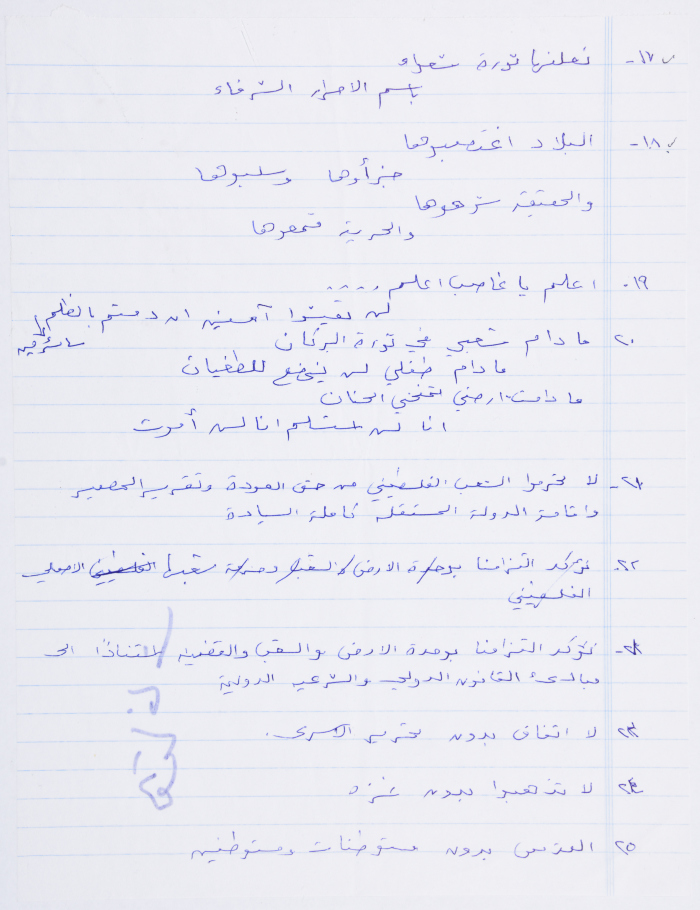 ١٧- نعلنها ثورة شعواء
باسم الاحرار الشرفاء
١٨- البلاد اغتصبوها
جزأوها وسلبوها
والحقيقة شوهوها
والحرية قمعوها
١٩- اعلم يا غاصب اعلم ....
لن تعيشوا آمنين ان دمتم بالظلم سائرين
٢٠ ما دام شعبي في ثورة البركان
ما دام طفلي لن يخضع للطغيان
ما دامت ارضي تمنحني الحنان
انا لن استسلم انا لن أموت
٢١- لا تحرموا الشعب الفلسطيني من حق العودة وتقرير المصير
واقامة الدولة المستقلة كاملة السيادة
٢٢- نؤكد التزامنا بوحدة الارض الشعب شعبها الفلسطيني الاصلي
الفلسطيني
نؤكد التزامنا بوحدة الارض والشعب والقضية استنادًا الى
مبادئ القانون الدولي والشرعية الدولية
٢٣ لا اتفاق بدون تحرير الاسرى.
٢٤ لا تذهبوا بدون غزه
٢٥ القدس بدون مستوطنات ومستوطنين